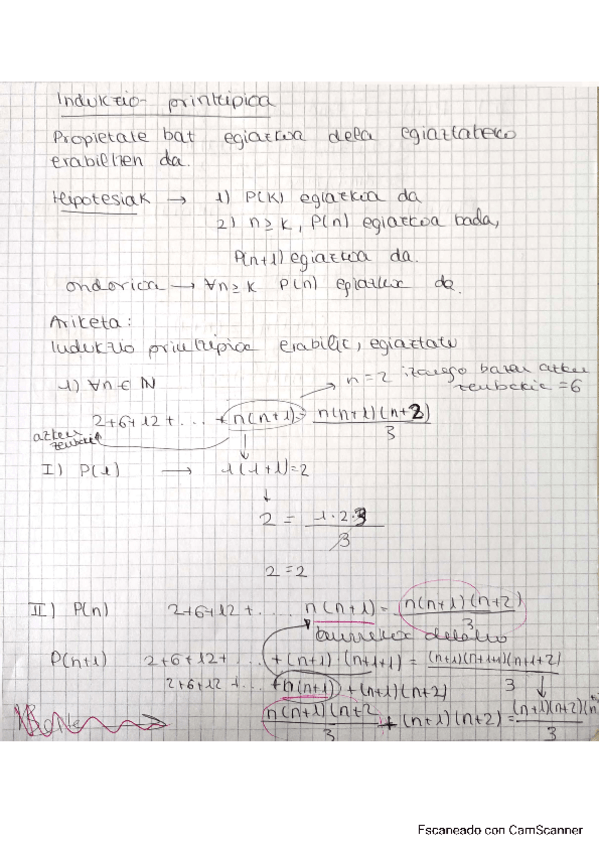 Indukzio- printzipioa
Propietate bat egiazkoa dela egiaztatzeko
erabiltzen da.
Hipotesiak → 1) P(k) egiazkoa da
2) n≥k, P(n) egiazkoa bada,
P(n+1) egiazkoa da.
ondorioa → ∀n≥k P(n) egiazkoa da.
Ariketa:
Indukzio printzipioa erabiliz, egiaztatu
1) ∀n∈ℕ
n=2 izango balitz azken
zenbakia=6
2+6+12+...+n(n+1)= n(n+1)(n+2)/3
azken
zenbakia
I) P(1) → 1(1+1)=2
2 = 1·2·3/3
2=2
II) P(n) 2+6+12+.... n(n+1)= n(n+1)(n+2)/3
P(n+1) 2+6+12+...+(n+1)·(n+1+1) = (n+1)(n+1+1)(n+1+2)/3
2+6+12+...+n(n+1)+(n+1)(n+2)
n(n+1)(n+2/3 + (n+1)(n+2) = (n+1)(n+2)(n/3
Escaneado con CamScanner